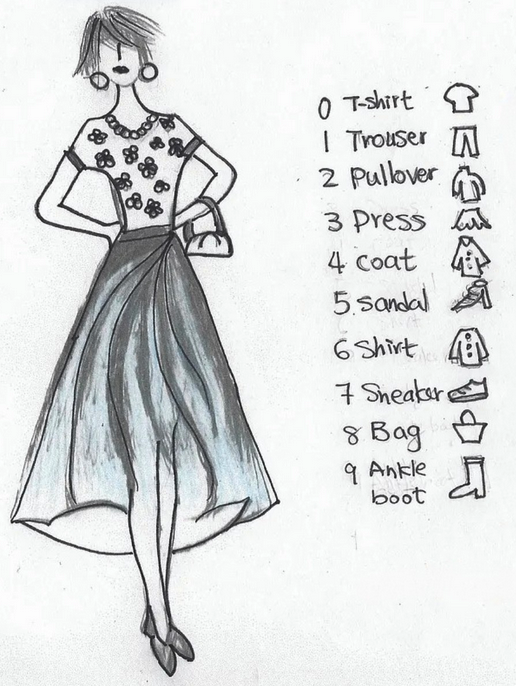 0 T-shirt
1 Trouser
2 Pullover
3 Dress
4 coat
5 sandal
6 Shirt
7 Sneaker
8 Bag
9 Ankle
boot